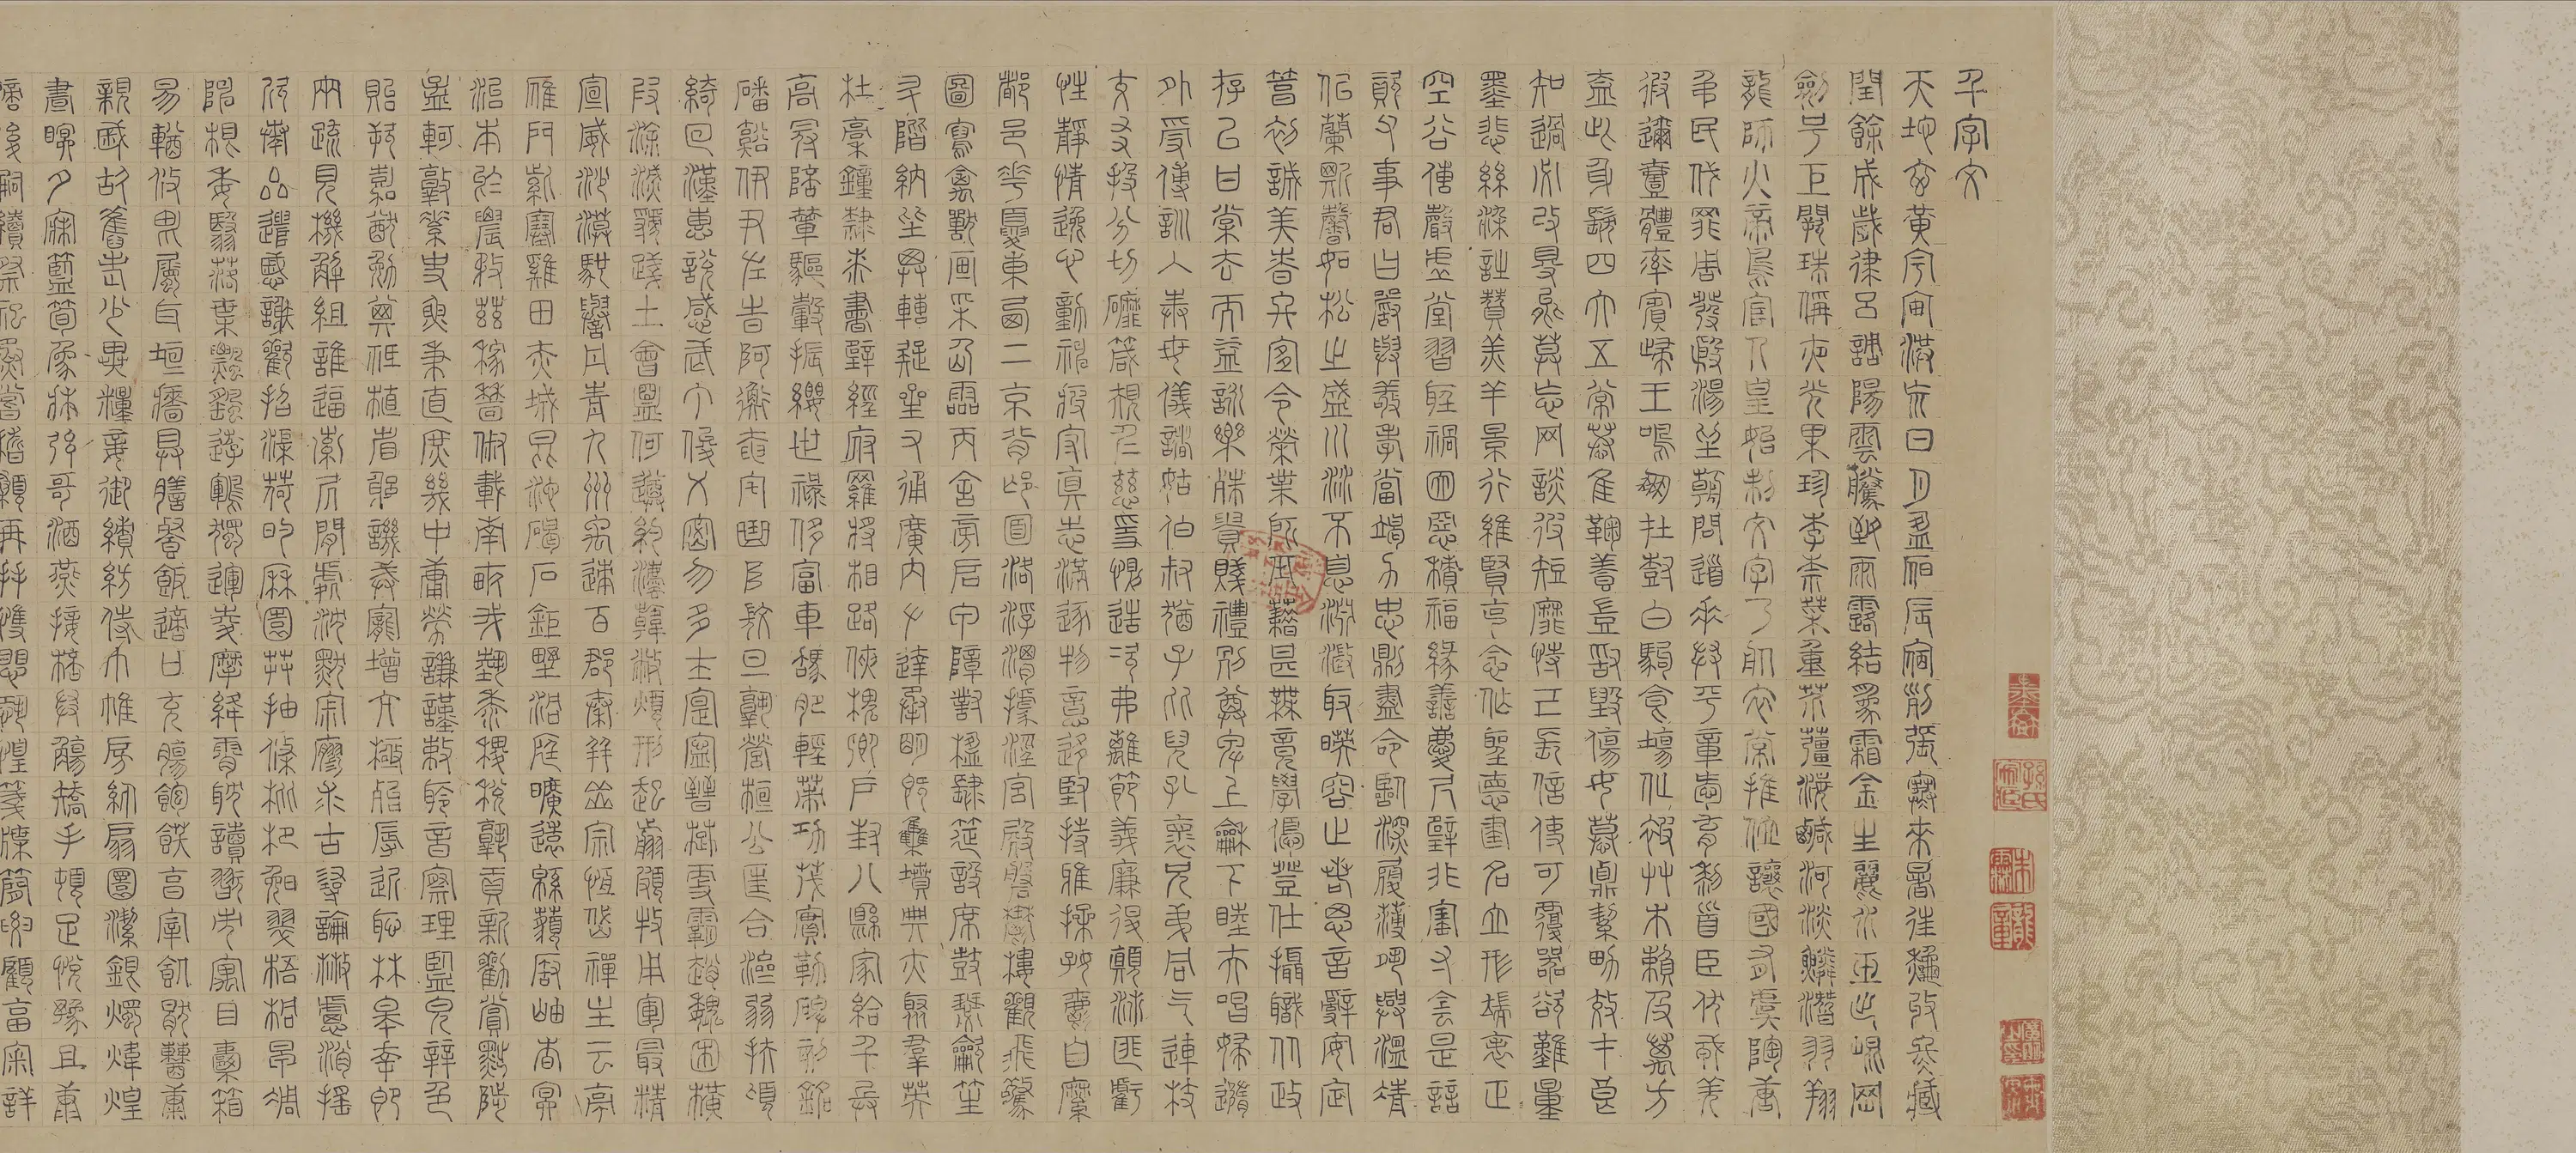 千字文
天地玄黃宇宙洪荒日月盈昃辰宿列張寒來暑往秋收冬藏
閏餘成歲律呂調陽雲騰致雨露結為霜金生麗水玉出崑岡
劍號巨闕珠稱夜光果珍李柰菜重芥薑海鹹河淡鱗潛羽翔
龍師火帝鳥官人皇始制文字乃服衣裳推位讓國有虞陶唐
弔民伐罪周發殷湯坐朝問道垂拱平章愛育黎首臣伏戎羌
遐邇壹體率賓歸王鳴鳳在樹白駒食場化被草木賴及萬方
蓋此身髮四大五常恭惟鞠養豈敢毀傷女慕貞絜男效才良
知過必改得能莫忘罔談彼短靡恃己長信使可覆器欲難量
墨悲絲染詩讚羔羊景行維賢克念作聖德建名立形端表正
空谷傳聲虛堂習聽禍因惡積福緣善慶尺璧非寶寸陰是競
資父事君曰嚴與敬孝當竭力忠則盡命臨深履薄夙興溫凊
似蘭斯馨如松之盛川流不息淵澄取暎容止若思言辭安定
篤初誠美慎終宜令榮業所基藉甚無竟學優登仕攝職從政
存以甘棠去而益詠樂殊貴賤禮別尊卑上和下睦夫唱婦隨
外受傅訓入奉母儀諸姑伯叔猶子比兒孔懷兄弟同氣連枝
交友投分切磨箴規仁慈隱惻造次弗離節義廉退顛沛匪虧
性靜情逸心動神疲守真志滿逐物意移堅持雅操好爵自縻
都邑華夏東西二京背邙面洛浮渭據涇宮殿盤鬱樓觀飛驚
圖寫禽獸畫采仙靈丙舍傍啟甲帳對楹肆筵設席鼓瑟吹笙
升階納陛弁轉疑星右通廣內左達承明既集墳典亦聚羣英
杜稾鍾隸漆書壁經府羅將相路俠槐卿戶封八縣家給千兵
高冠陪輦驅轂振纓世祿侈富車駕肥輕策功茂實勒碑刻銘
磻谿伊尹佐時阿衡奄宅曲阜微旦孰營桓公匡合濟弱扶傾
綺迴漢惠說感武丁俊乂密勿多士寔寧晉楚更霸趙魏困橫
假途滅虢踐土會盟何遵約法韓弊煩刑起翦頗牧用軍最精
宣威沙漠馳譽丹青九州禹跡百郡秦并嶽宗恆岱禪主云亭
雁門紫塞雞田赤城昆池碣石鉅野洞庭曠遠緜邈巖岫杳冥
治本於農務茲稼穡俶載南畝我藝黍稷稅熟貢新勸賞黜陟
孟軻敦素史魚秉直庶幾中庸勞謙謹敕聆音察理鑑貌辨色
貽厥嘉猷勉其祗植省躬譏誡寵增抗極殆辱近恥林皋幸即
兩疏見機解組誰逼索居閒處沈默寂寥求古尋論散慮逍遙
欣奏累遣慼謝歡招渠荷的歷園莽抽條枇杷晚翠梧桐早凋
陳根委翳落葉飄颻遊鵾獨運凌摩絳霄耽讀翫市寓目囊箱
易輶攸畏屬耳垣牆具膳餐飯適口充腸飽飫烹宰飢厭糟糠
親戚故舊老少異糧妾御績紡侍巾帷房紈扇圓潔銀燭煒煌
晝眠夕寐藍筍象牀弦歌酒讌接杯舉觴矯手頓足悅豫且康
嫡後嗣續祭祀烝嘗稽顙再拜悚懼恐惶牋牒簡要顧答審詳